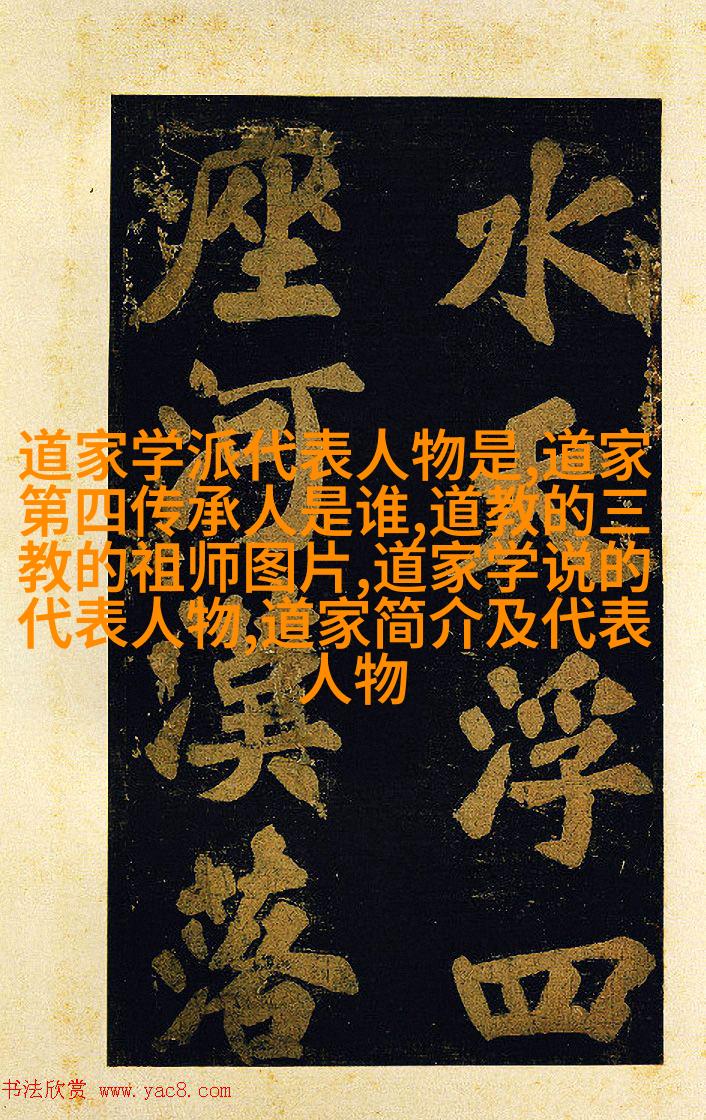 水浮四
座河漢落
道家学派代表人物是,道家
第四传承人是谁,道教的三
教的祖师图片,道家学说的
代表人物,道家简介及代表
人物
书法欣赏 www.yac8.com